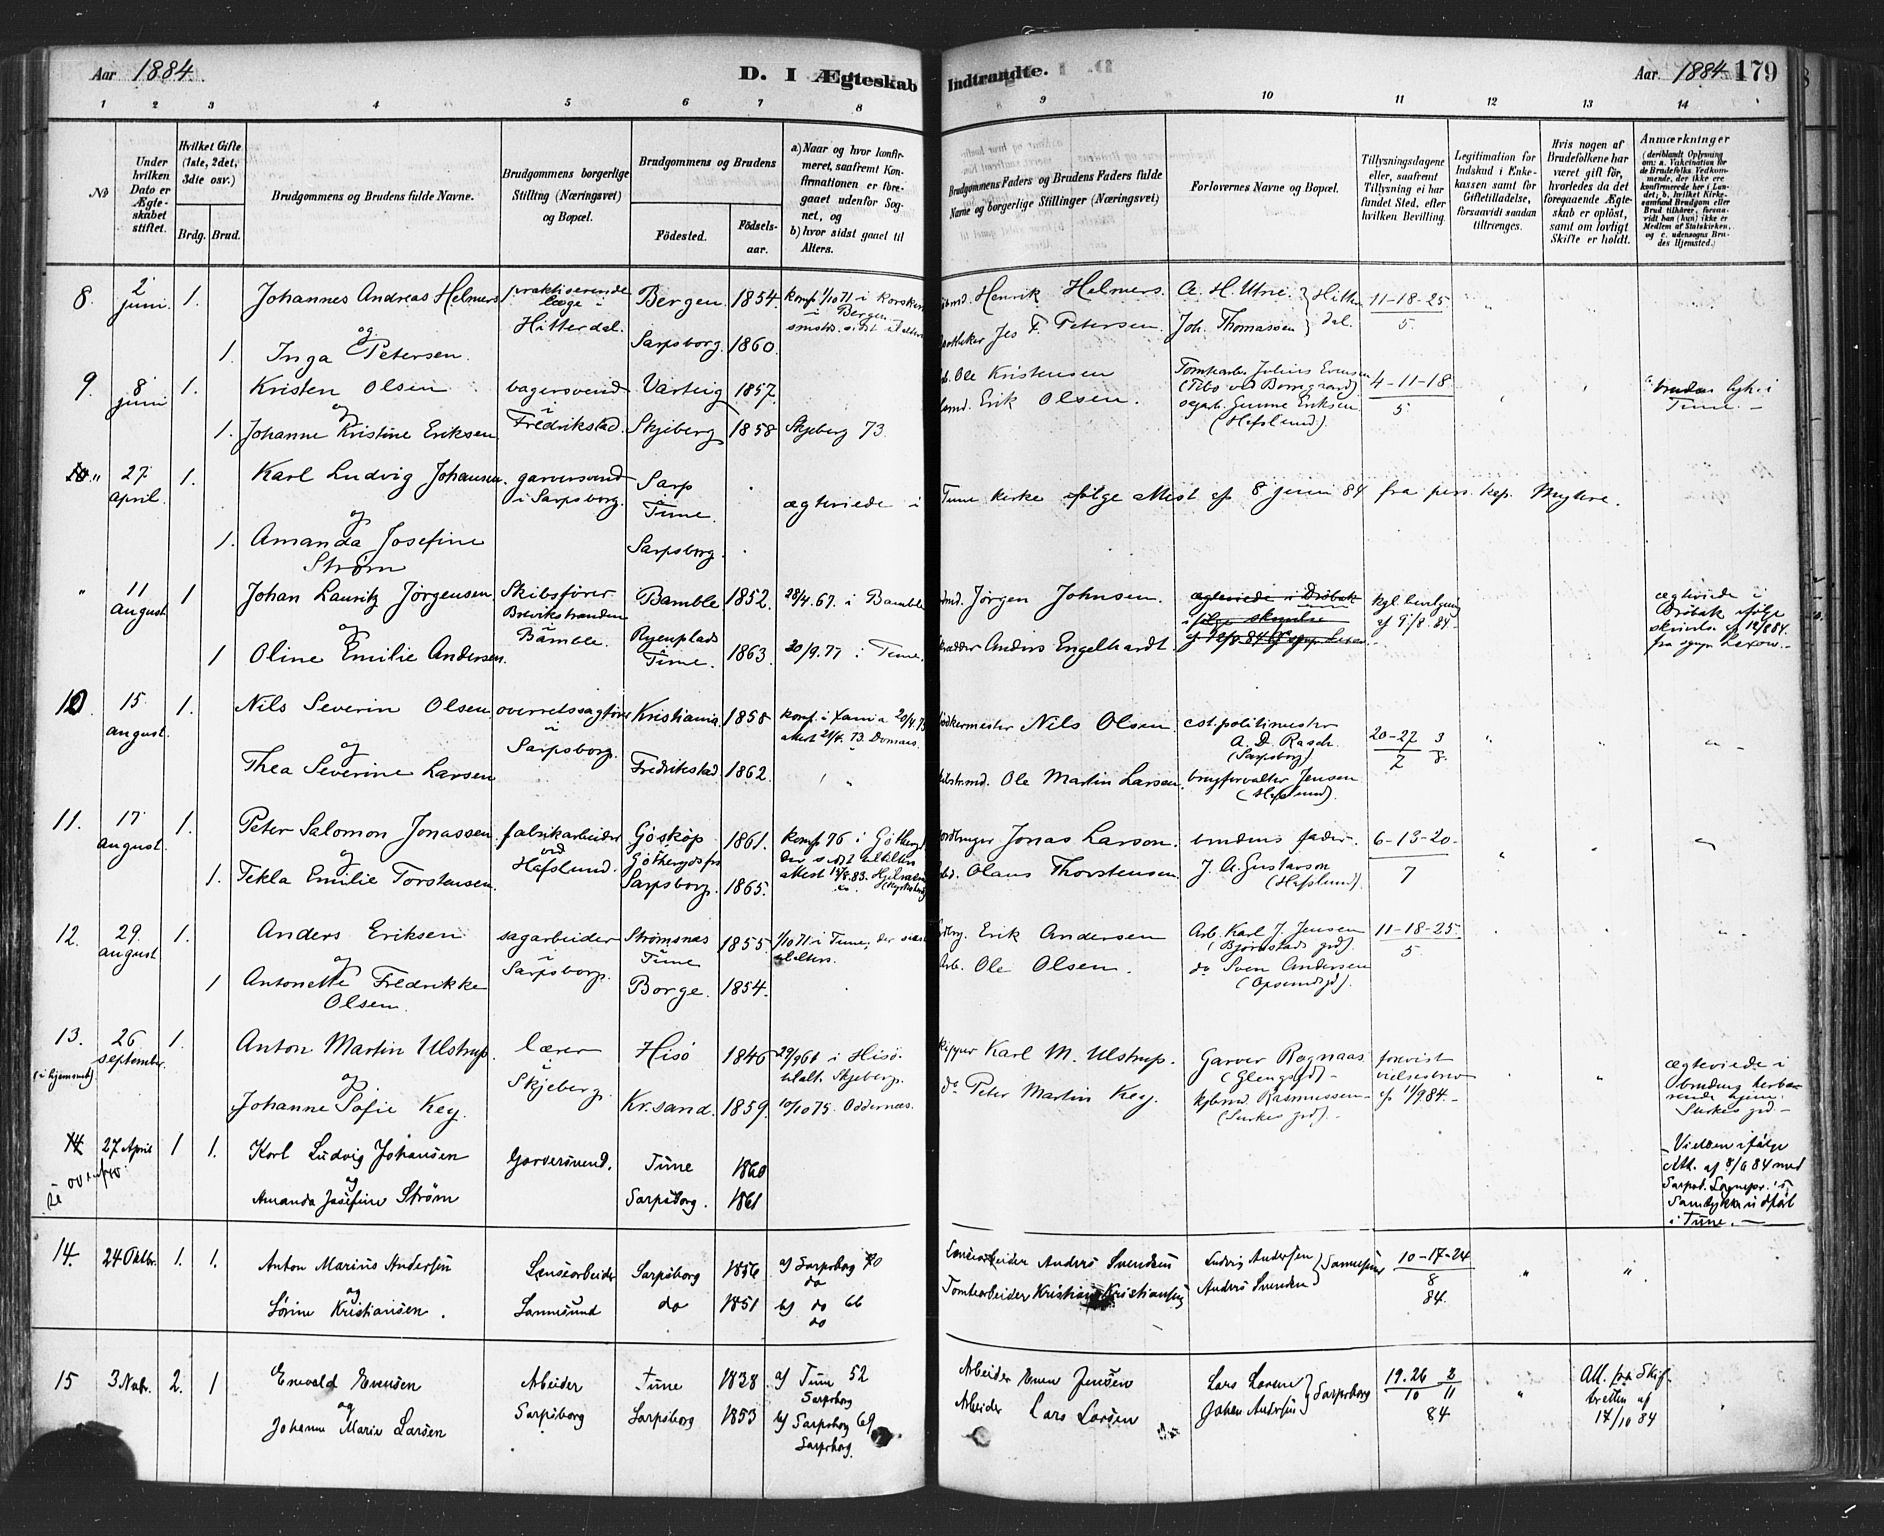 Aar 1884.
D. I Ægteskab Indtrandte.
Aar 1884 179
1 2 3 4 5 6 7 8 9 10 11 12 13 14
No
Under hvilken Dato er Ægteskabet stiftet.
Hvilket Gifte (1ste, 2det, 3die osv.)
Brdg. Brud.
Brudgommens og Brudens fulde Navne.
Brudgommens borgerlige Stilling (Næringsvei) og Bopæl.
Brudgommens og Brudens
Födested. Födselsaar.
a) Naar og hvor konfirmeret, saafremt Konfirmationen er foregaaet udenfor Sognet, og
b) hvor sidst gaaet til Alters.
Brudgommens Faders og Brudens Faders fulde Navne og borgerlige Stillinger (Næringsvei)
Forlovernes Navne og Bopæl.
Tillysningsdagene eller, saafremt Tillysning ei har fundet Sted, efter hvilken Bevilling.
Legitimation for Indskud i Enkekassen samt for Giftetilladelse, forsaavidt saadan tiltrænges.
Hvis nogen af Brudefolkene har været gift för, hvorledes da det foregaaende Ægteskab er oplöst, samt om lovligt Skifte er holdt.
Anmærkninger
(deriblandt Oplysning om: a. Vakcination for de Brudefolks Vedkommende, der ikke ere konfirmerede her i Landet; b. hvilket Kirkesamfund Brudgom eller Brud tilhörer, forsaavidt han (hun) ikke er Medlem af Statskirken, og c. udensogns Brudes Hjemsted.)
8. 2 juni 1. Johannes Andreas Helmers praktiserende læge i Hitterdal. Bergen 1854. konf 1/10 71 i Korskirk i Bergen Henrik Helmers. A. H. Utne Hitterdal. 11-18-25
og
1. Inga Petersen. Sarpsborg. 1860. Jes F Petersen. Joh. Thomassen 5.
9. 8 juni 1. Kristen Olsen bagersvend i Fredrikstad. Varteig 1857. Ole Kristensen 4-11-18 brudens lysn. i Tune.
og
1. Johanne Kristine Eriksen Skjeberg 1858 Skjeberg 73. Erik Olsen. Gunne Eriksen (Hafslund). 5.
10 " 27 april 1. Karl Ludvig Johansen. garversvend i Sarpsborg. Sarp Tune. ægteviede i Tune kirke ifølge attest af 8 juni 84 fra pers. kap.
og
1. Amanda Josefine Strøm Sarpsborg.
" 11 august 1 Johan Lauritz Jörgensen Skibsfører Brevikstranden i Bamble. Bamble 1852. 28/4.67. i Bamble Jörgen Johnsen. ægteviede i Dröbak ifölge skrivelse kgl. bevilgning af 9/8.84. ægteviede i Dröbak ifölge skrivelse af 12/8 84. fra sogp. Lexow.
og
1 Oline Emilie Andersen. Ryenplads Tune. 1863. 20/9.77 i Tune. Anders Engelhardt.
10. 15 august. 1. Nils Severin Olsen overretssagfører i Sarpsborg. Kristiania 1858 konf. i Xania Nils Olsen cst. politimester A. D. Rasch (Sarpsborg) 20-27 3
og 7 8.
Thea Severine Larsen Fredrikstad. 1862. Ole Martin Larsen. brugforvalter Jensen (Hafslund).
11. 17 august. 1. Peter Salomon Jonassen. fabrikarbeider ved Hafslund. 1861. konf 76 i Jonas Larson. brudens fader. 6-13-20
og
1. Tekla Emilie Torstensen. Sarpsborg. 1865. Olaus Thorstensen J. A. Gustavson (Hafslund). 7
12. 29. august 1. Anders Eriksen sagarbeider i Sarpsborg. Strømsnæs Tune 1855. 1/10 71 i Tune, der sidst tilalters. Erik Andersen Arb. Karl J. Jensen (Bjørnstads grd). 11-18-25.
og
1 Antonette Fredrikke Olsen. Borge. 1854. Arb. Ole Olsen. do Sven Andersen 5
13. (i hjemmet) 26 september. 1. Anton Martin Ulstrup. lærer i Skjeberg. Hisö 1846 i Hisö. tilalt. Skjeberg. Karl M. Ulstrup. Garver Rognaas (Glengsgd) forevist vielsesbrev af 11/9 84. ægteviede i
og
Johanne Sofie Key. Kr.sand. 1859. 10/10 75. Oddernæs. do Peter Martin Key. kjbmd. Rasmussen
14 Se ovenfor. 27 April 1 1. Karl Ludvig Johansen Garversvend. Tune 1860 Vielsen ifølge Att. af 8/6 84 med Sarpsb. Sognepr.'s Samtykke udført i Tune.
og
Amanda Josefine Strøm Sarpsborg. 1861
14. 24 Oktbr. 1. 1. Anton Marius Andersen Lensearbeider Sannesund Sarpsborg 1856 a) Sarpsborg 70 do Anders Svendsen Ludvig Andersen Sannesund 10-17-24
og 8
Sörine Kristiansen. do 1851 b) do 66 do Tomtearbeider Kristian Kristiansen Anders Svendsen 84.
15 3 Nvbr. 2. 1 Enevald Evensen Arbeider Sarpsborg Tune 1828 a) Tune 52 Sarpsborg Arbeider Even Jensen Lars Larsen Sarpsborg 19.26 2 Att. fra Skifteretten af 17/10 84
og 10 11
Johanne Marie Larsen Sarpsborg 1853 b) Sarpsborg 69 Sarpsborg. Arbeider Lars Larsen Johan Andersen 84